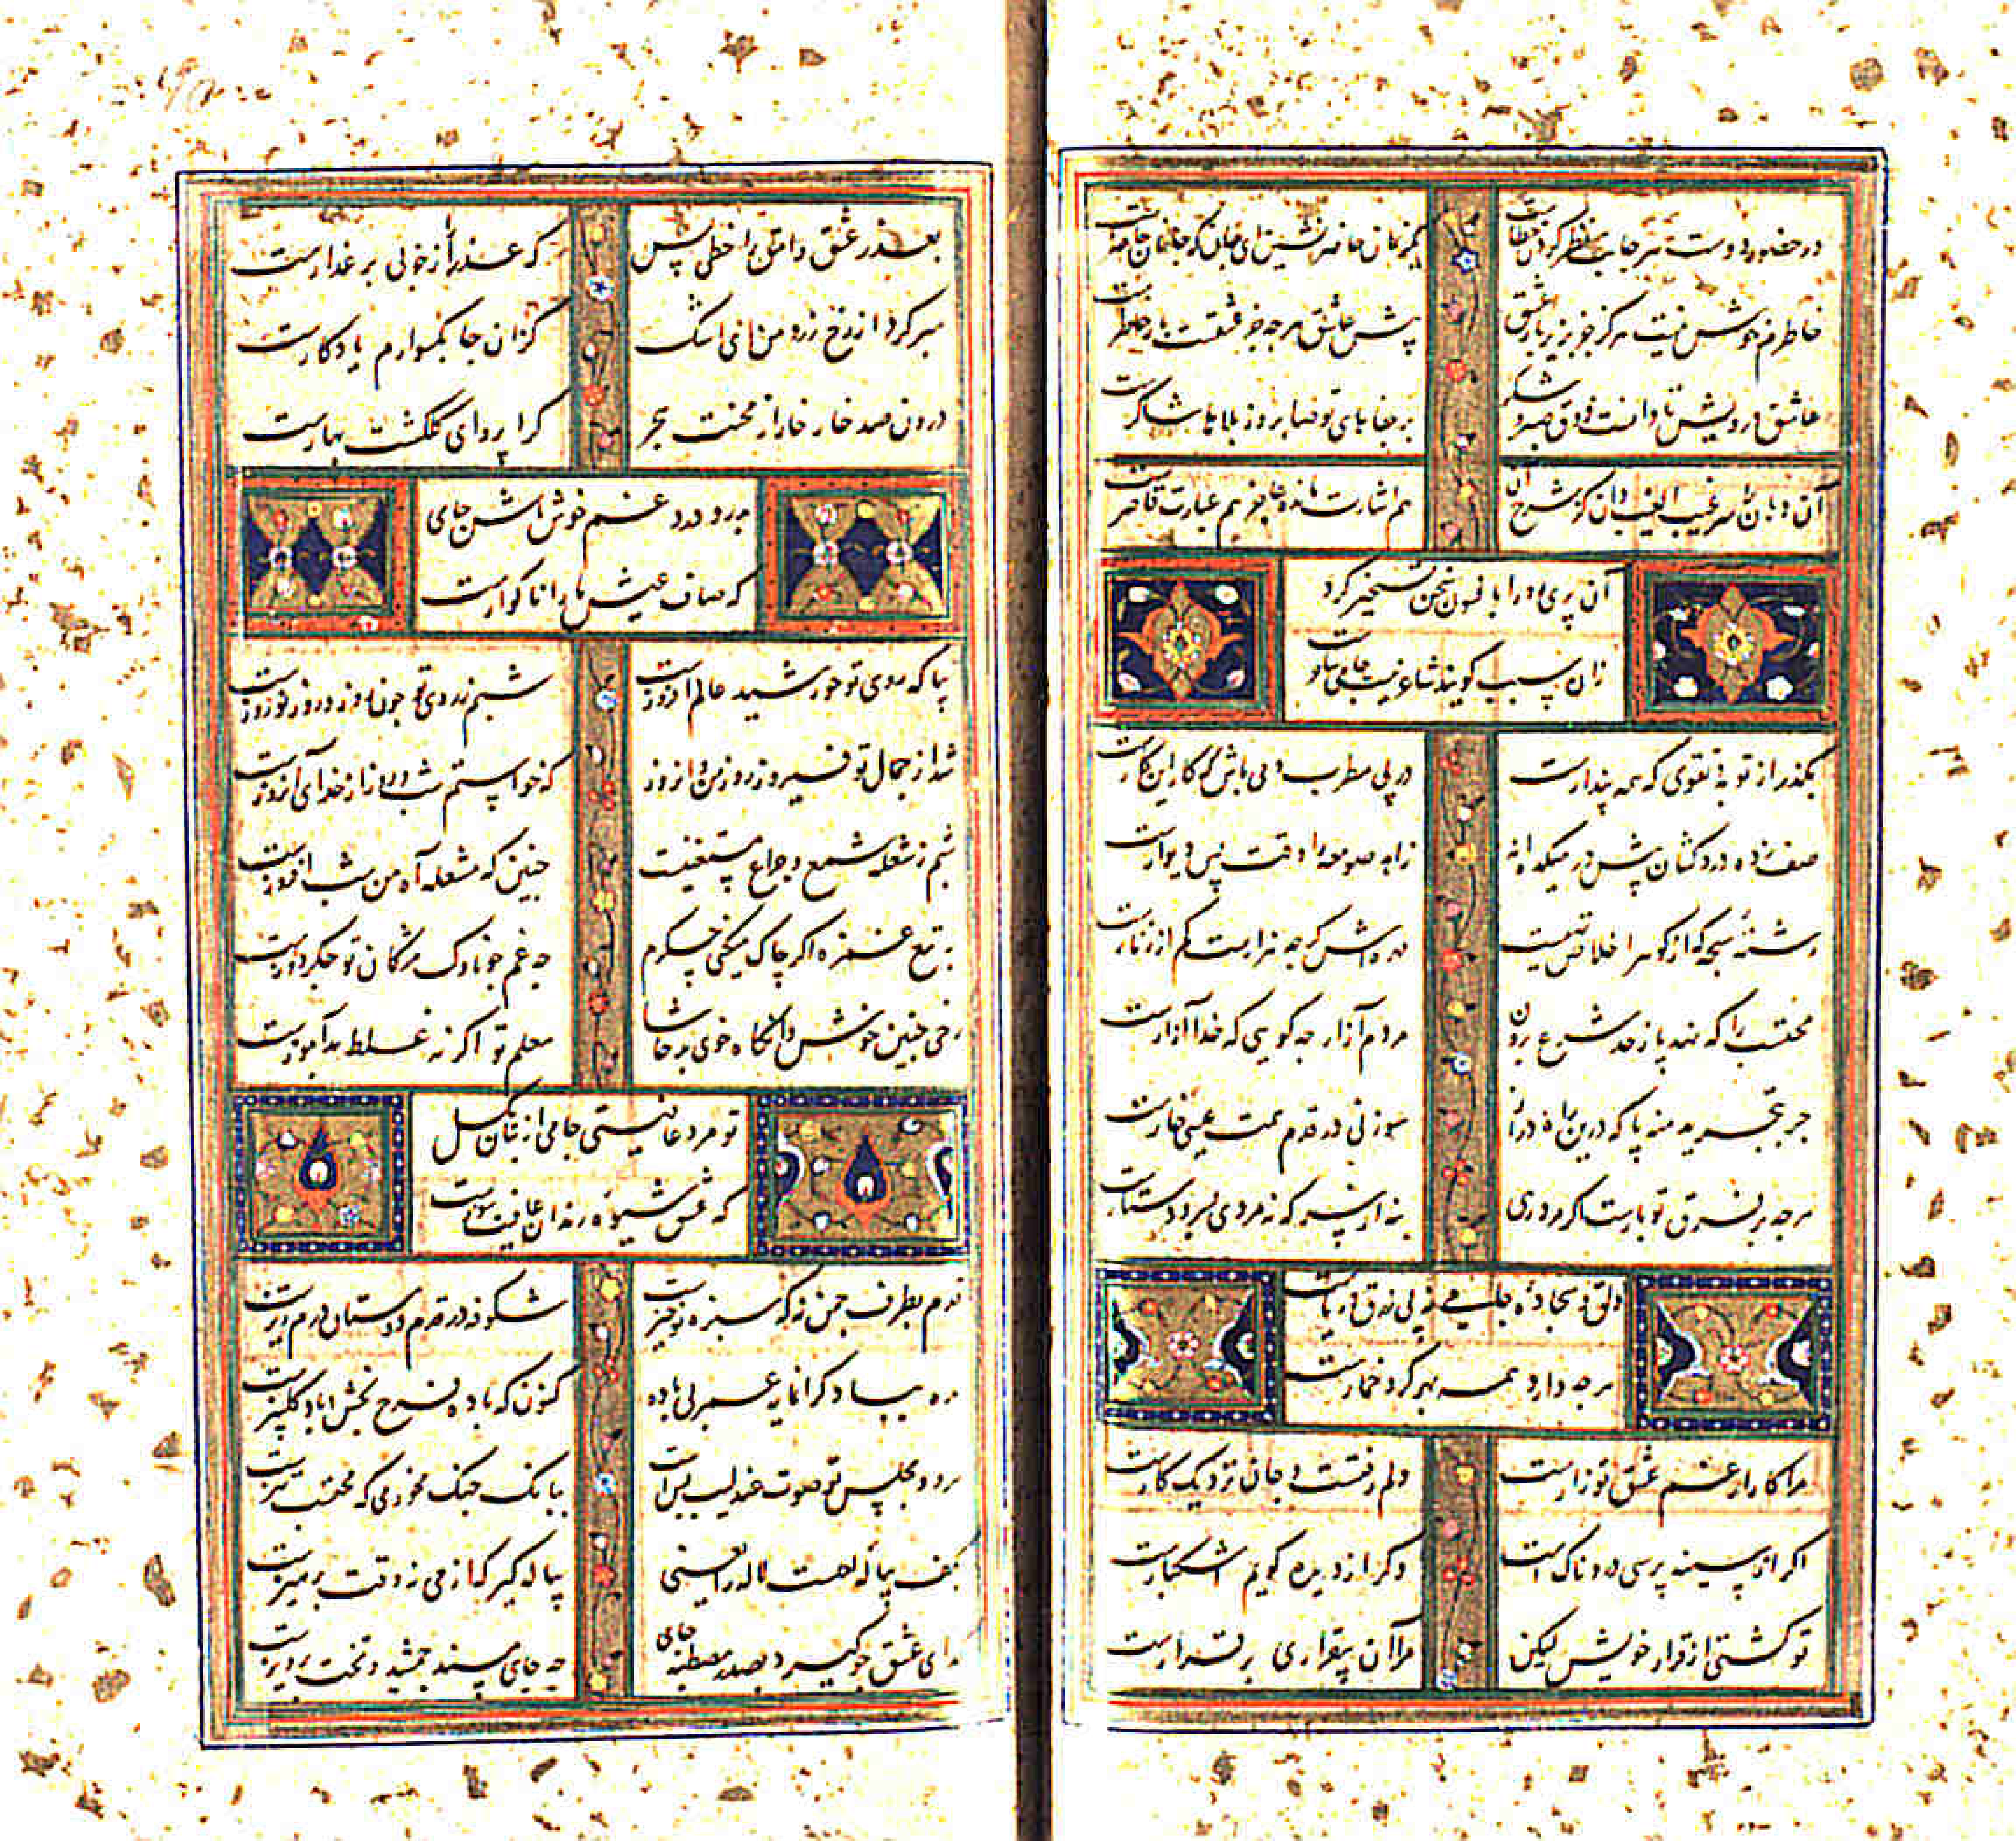 در حضور دوست هر جانب نظر کردن خطاست
یکزمان حاضر نشین ای جان که جانان حاضرست
خاطرم خوش نیست هرگز جز بزیر بار عشق
پیش عاشق هرچه جز عشقت بار خاطرست
عاشق درویش تا دانست ذوق صبر و شکر
بر جفاهای تو صابر وز بلاها شاکرست
آن دهان سر غیب الغیب دان کز شرح آن
هم اشارت مانده عاجز هم عبارت قاصرست
آن پری رو را بافسون سخن تسخیر کرد
زان سبب گویند شاعر نیست جامی ساحرست
بگذر از توبه و تقوی که همه پندارست
در پی مطرب و می باش که کار این کارست
صف زده دردکشان پیش در میکده اند
زاهد صومعه را وقت پس دیوارست
رشته سبحه که از گوهر اخلاص تهیست
مهره اش گرچه هزارست کم از زنارست
محتسب را که نهد پا ز حد شرع برون
مردم آزار چه گویی که خدا آزارست
جز بتجرید منه پا که درین راه دراز
سوزنی در قدم همت عیسی خارست
هرچه بر فرق تو بارست اگر مردوری
بنه از سر که نه مردی بسر و دستارست
دلق و سجاده جامی نه پی زرق و ریاست
هرچه دارد همه بهر گرو خمارست
مرا کار از غم عشق تو زارست
دلم رفتست و جان نزدیک کارست
اگر از سینه پرسی دردناک است
وگر از دیده گویم اشکبارست
تو گشتی از قرار خویش لیکن
مرا آن بیقراری برقرارست
بعذر عشق وامق را خطی بس
که عذرا را ز خوبی بر عذارست
مبر گرد از رخ زرد من ای اشک
کزان جابکسوارم یادگارست
درون صد خار خار از محنت هجر
کرا پروای گلگشت بهارست
بدرد درد غم خوش باش جامی
که صاف عیش ما را ناگوارست
بیا که روی تو خورشید عالم افروزست
شبم ز روی تو چون روز و روز نوروزست
شد از جمال تو فیروز روز من و امروز
که خواستم شب دراز از خدای آن روزست
شبم ز شعله شمع و چراغ مستغنیست
چنین که مشعله آه من شب افروزست
به تیغ غمزه اگر چاک میکنی جگرم
چه غم چو ناوک مژگان تو جگردوزست
رخی چنین خوش و آنگاه خوی بد حاشا
معلم تو اگر نه غلط بدآموزست
تو مرد عافیتی جامی از بتان بگسل
که عشق شیوه رندان عافیت سوزست
قدم بطرف چمن نه که سبزه نوخیزست
شکوفه در قدم دوستان درم ریزست
مده بباد گرانمایه عمر بی باده
کنون که باده فرح بخش و باد گلبیزست
سرود مجلس تو صوت عندلیب بس است
ببانگ چنگ مخور می که محتسب تیزست
بکف پیاله لعلست لاله را یعنی
پیاله گیر که از می نه وقت پرهیزست
گدای عشق چو گیرد بصدر مصطبه جای
چه جای مسند جمشید و تخت پرویزست